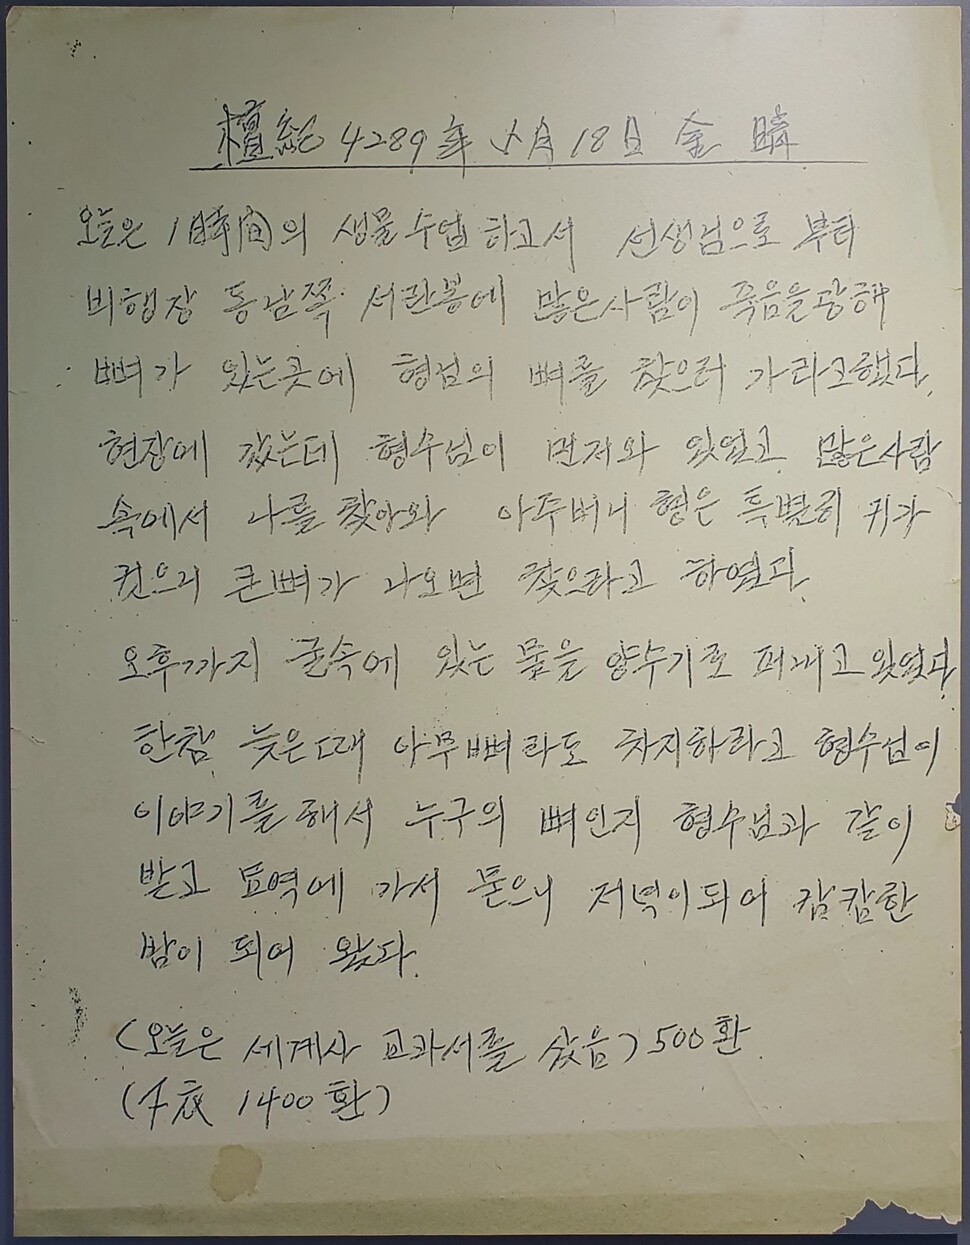 檀紀 4289年 5月 18日 金 晴
오늘은 1時間의 생물수업하고서 선생님으로 부터
비행장 동남쪽 서란봉에 많은사람이 죽음을 당해
뼈가 있는곳에 형님의 뼈를 찾으러 가라고했다.
현장에 갔는데 형수님이 먼저와 있었고 많은사람
속에서 나를 찾아와 아주버니 형은 특별히 귀가
컷으니 큰뼈가 나오면 찾으라고 하였다.
오후까지 굴속에 있는 물을 양수기로 퍼내고 있었다.
한참 늦은때 아무뼈라도 차지하라고 형수님이
이야기를 해서 누구의 뼈인지 형수님과 같이
받고 묘역에 가서 묻으니 저녁이되어 캄캄한
밤이 되어 왔다.
(오늘은 세계사 교과서를 샀음) 500환
(下衣 1400환)